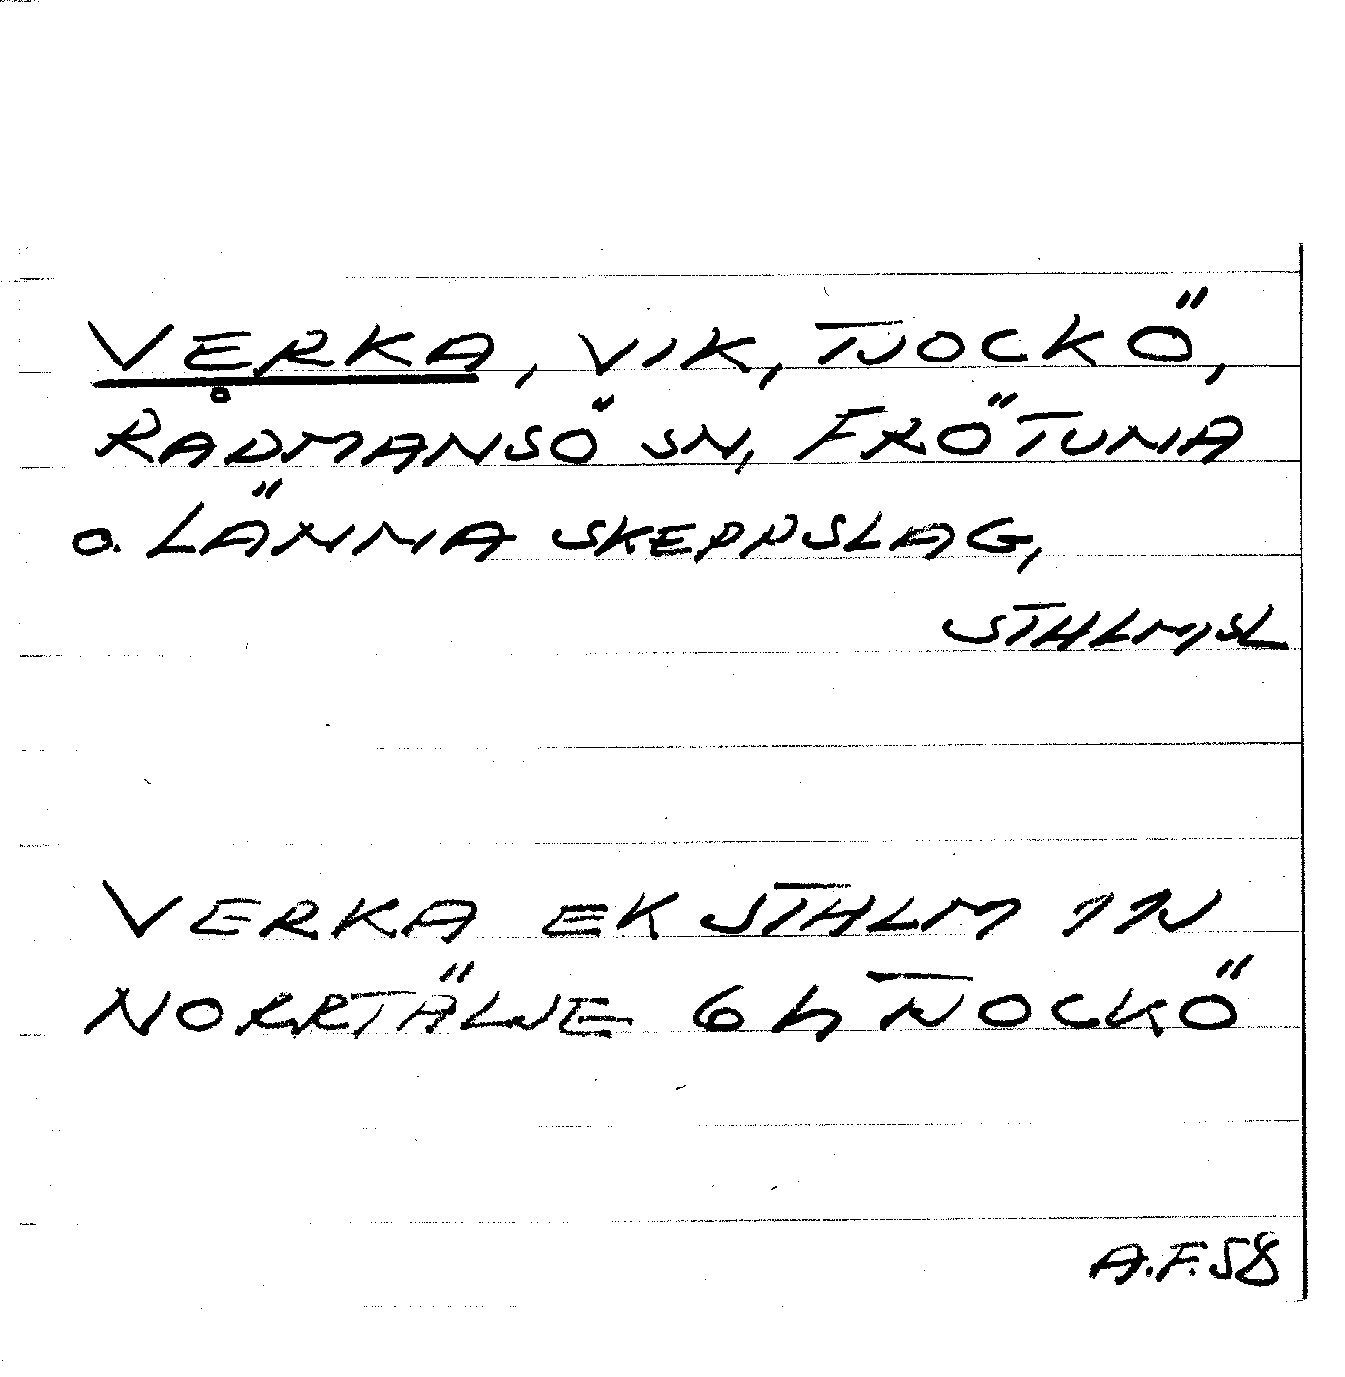 VERKA, VIK, TJOCKÖ,
RÅDMANSÖ SN, FRÖTUNA
o. LÄNNA SKEPPSLAG,
STHLMSL
VERKA EK STHLM 11 NV
NORRTÄLJE 6 h TJOCKÖ
A.F. 58